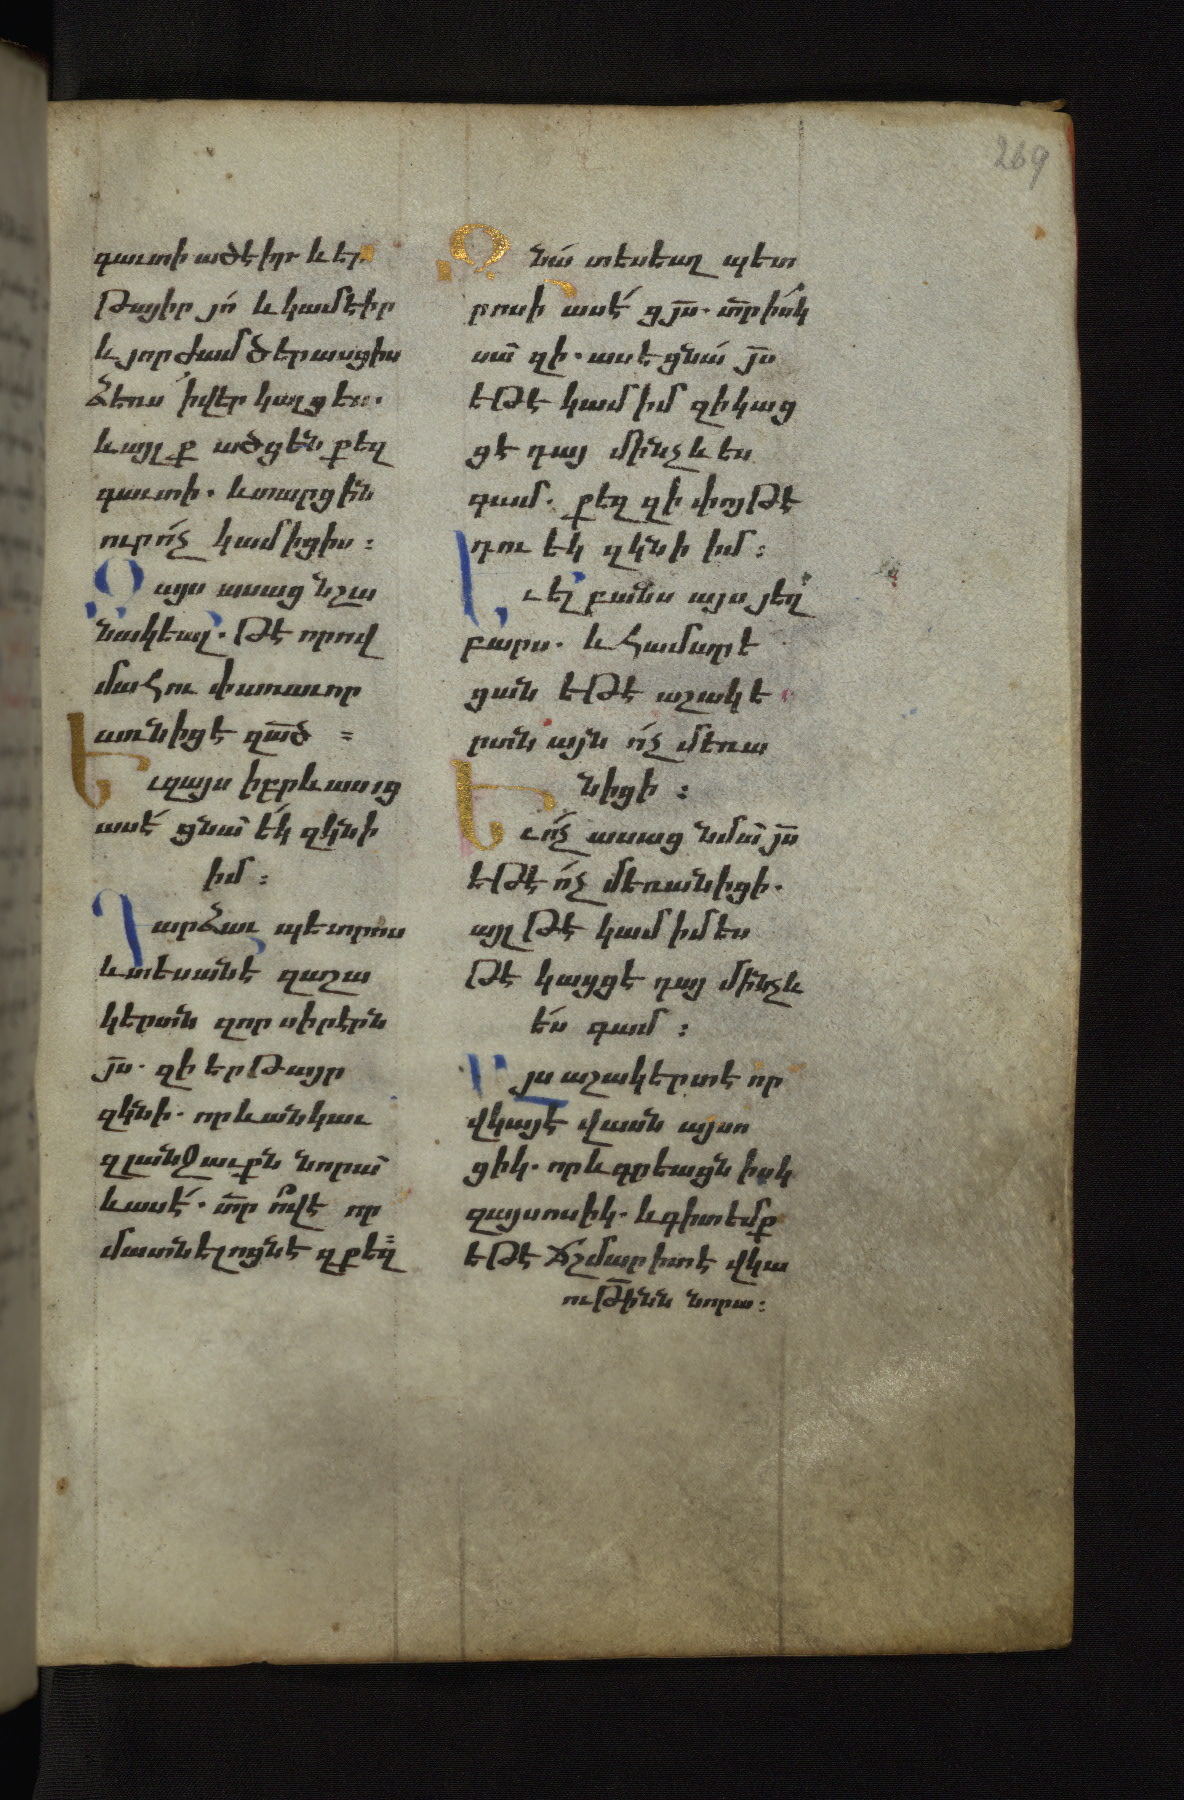 269
գաւտի ածէիր և եր
թայիր յո՛ և կամէիր
և յորժամ ծերասցիս
ձեռս ի վեր կալցես.
և այլք ածցեն քեզ
գաւտի. և տարցին
ուր ո՛չ կամիցիս :
Զայս ասաց նշա
նակեալ. թէ որով
մահու փառաւոր
առնիցէ զած :
Եւ զայս իբրև ասաց
ասէ՛ ցնա՝ ե՛կ զկնի
իմ :
Դարձաւ պետրոս
և տեսանէ՛ զաշա
կերտն զոր սիրէրն
յս. զի երթայր
զկնի. որ և անկաւ
զլանջաւքն նորա՝
և ասէ՛. տր ո՞վ է որ
մատնելոցն է զքեզ
Զնա՛ տեսեալ պետ
րոսի ասէ՛ ցյս. տր իսկ
սա՝ զի. ասէ ցնա՛ յս
եթէ կամ իմ զի կաց
ցէ դայ մինչև ես
գամ. քեզ զի փոյթ է
դու եկ զկնի իմ :
Ել բանս այս յեղ
բարս. և համարէ
ցան եթէ աշակե
րտն այն ո՛չ մեռա
նիցի :
Եւ ո՛չ ասաց նմա՝ յս
եթէ ո՛չ մեռանիցի.
այլ թէ կամ իմ ես
թէ կացցէ դայ մինչև
ե՛ս գամ :
Այս աշակերտ է որ
վկայէ վասն այսո
ցիկ. որ և գրեացն իսկ
զայսոսիկ. և գիտեմք
եթէ ճշմարիտ է վկա
ութինն նորա :